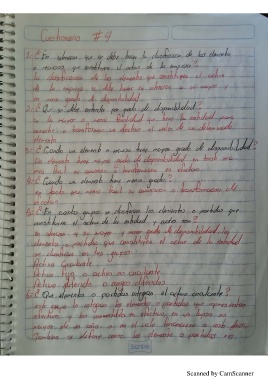 Cuestionario # 4
1.¿ En atención a que se debe hacer la clasificación de los elementos
o recursos que constituyen el activo de la empresa?
la clasificación de los elementos que constituyen el activo
de la empresa se debe hacer en atención a su mayor y
menor grado de disponibilidad
2.¿ Que se debe entender por grado de disponibilidad?
la mayor o menor facilidad que tiene la entidad para
convertir o transformar en efectivo el valor de un determinado
elemento
3.¿ Cuando un elemento o recurso tiene mayor grado de disponibilidad?
un elemento tiene mayor grado de disponibilidad en tanto sea
mas fácil su
4.¿ Cuando un elemento tiene menor grado?
es menos fácil su conversión o transformación de
efectivo
5.¿ En cuantos grupos se clasifican los elementos o partidas que
constituyen el activo de la entidad, y cuales son?
En atención a su mayor y menor grado de disponibilidad, los
elementos y partidas que constituyen el activo de la entidad
se clasifican en tres grupos:
Activo Circulante
Activo fijo o activo no circulante
Activo diferido o cargos diferidos
6.¿ Que elementos o partidas integran el activo circulante?
Este grupo lo integran los elementos o partidas que representan
efectivo y los convertibles en efectivo, en un plazo no
mayor de un año o en el ciclo
También se define como los elementos o partidas
Scanned by CamScanner